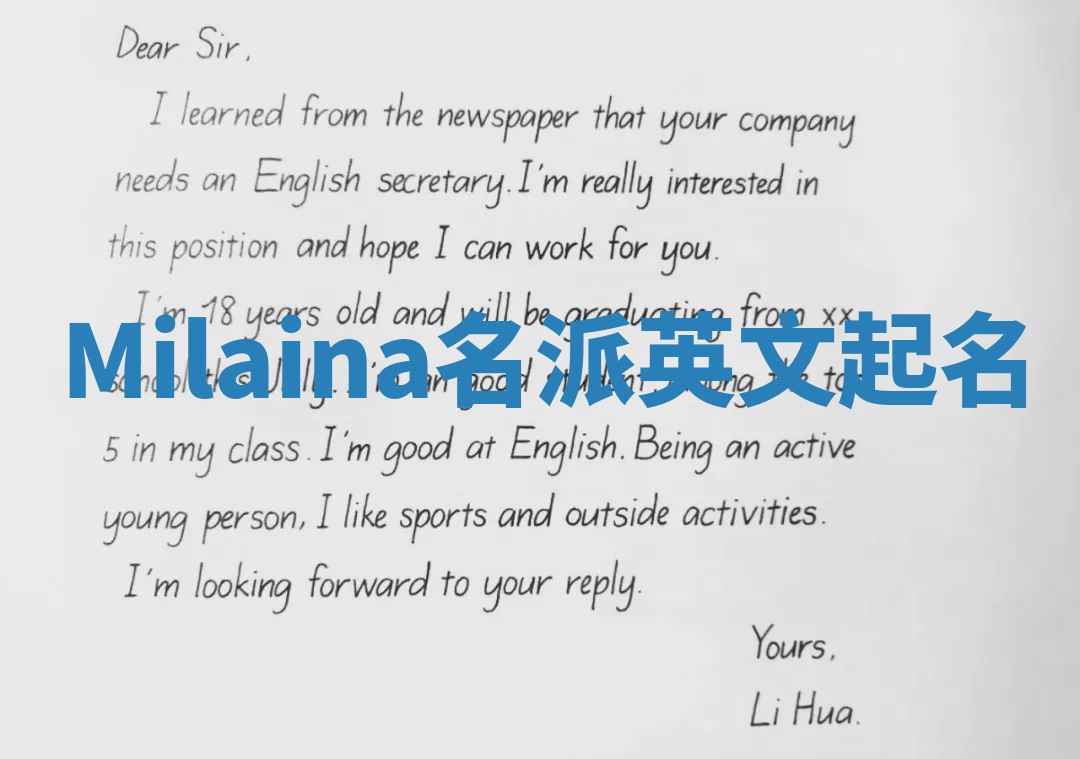 Dear Sir,
I learned from the newspaper that your company
needs an English secretary. I'm really interested in
this position and hope I can work for you.
I'm 18 years old and will be graduating from xx
Milaina名派英文起名
school this July. I'm an good student among the top
5 in my class. I'm good at English. Being an active
young person, I like sports and outside activities.
I'm looking forward to your reply.
Yours,
Li Hua.